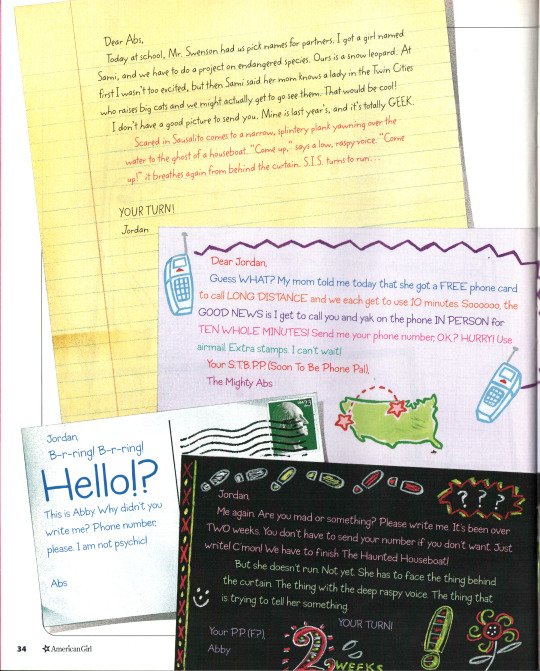 Dear Abs,
Today at school, Mr. Swenson had us pick names for partners. I got a girl named
Sami, and we have to do a project on endangered species. Ours is a snow leopard. At
first I wasn't too excited, but then Sami said her mom knows a lady in the Twin Cities
who raises big cats and we might actually get to go see them. That would be cool!
I don't have a good picture to send you. Mine is last year's, and it's totally GEEK.
Scared in Sausalito comes to a narrow, splintery plank yawning over the
water to the ghost of a houseboat. "Come up," says a low, raspy voice. "Come
up!" it breathes again from behind the curtain. S.I.S. turns to run...
YOUR TURN!
Jordan
Dear Jordan,
Guess WHAT? My mom told me today that she got a FREE phone card
to call LONG DISTANCE and we each get to use 10 minutes. Sooooooo, the
GOOD NEWS is I get to call you and yak on the phone IN PERSON for
TEN WHOLE MINUTES! Send me your phone number, O.K.? HURRY! Use
airmail. Extra stamps. I can't wait!
Your S.T.B.P.P. (Soon To Be Phone Pal),
The Mighty Abs
USA 23
Jordan,
B-r-ring! B-r-ring!
Hello!?
This is Abby. Why didn't you
write me? Phone number,
please. I am not psychic!
Abs
? ? ?
Jordan,
Me again. Are you mad or something? Please write me. It's been over
TWO weeks. You don't have to send your number if you don't want. Just
write! C'mon! We have to finish The Haunted Houseboat!
But she doesn't run. Not yet. She has to face the thing behind
the curtain. The thing with the deep raspy voice. The thing that
is trying to tell her something.
YOUR TURN!
Your P.P. (F?),
Abby
2 WEEKS
34 American Girl